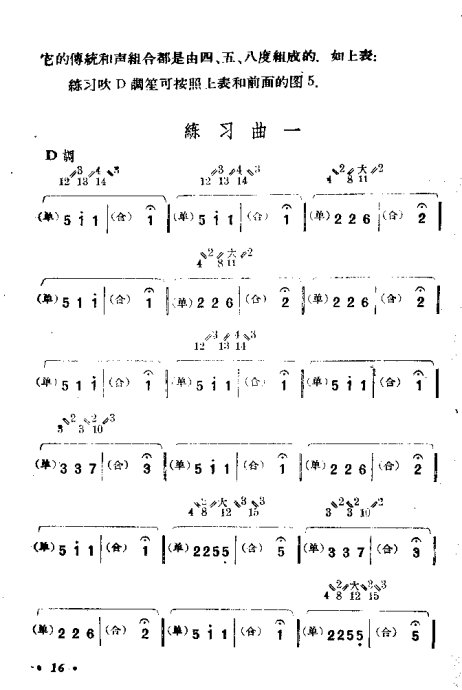 它的傳統和声組合都是由四、五、八度組成的. 如上表:
練习吹 D 調笙可按照上表和前面的图 5.
練 习 曲 一
D 調
3 4 3 3 4 3 2 大 2
12 13 14 12 13 14 4 8 11
(单) 5 i 1 | (合) 1 | (单) 5 i 1 | (合) 1 | (单) 2 2 6 | (合) 2
2 大 2
4 8 11
(单) 5 1 i | (合) 1 | (单) 2 2 6 | (合) 2 | (单) 5 i 1 | (合) 2
3 4 3
12 13 14
(单) 5 1 i | (合) 1 | (单) 5 i 1 | (合) 1 | (单) 5 i 1 | (合) 1
2 2 3
3 3 10
(单) 3 3 7 | (合) 3 | (单) 5 i 1 | (合) 1 | (单) 2 2 6 | (合) 2
2 大 3 3 2 2 2
4 8 12 15 3 3 10
(单) 5 i 1 | (合) 1 | (单) 2 2 5 5 | (合) 5 | (单) 3 3 7 | (合) 3
2 大 3 3
4 8 12 15
(单) 2 2 6 | (合) 2 | (单) 5 i 1 | (合) 1 | (单) 2 2 5 5 | (合) 5
• 16 •